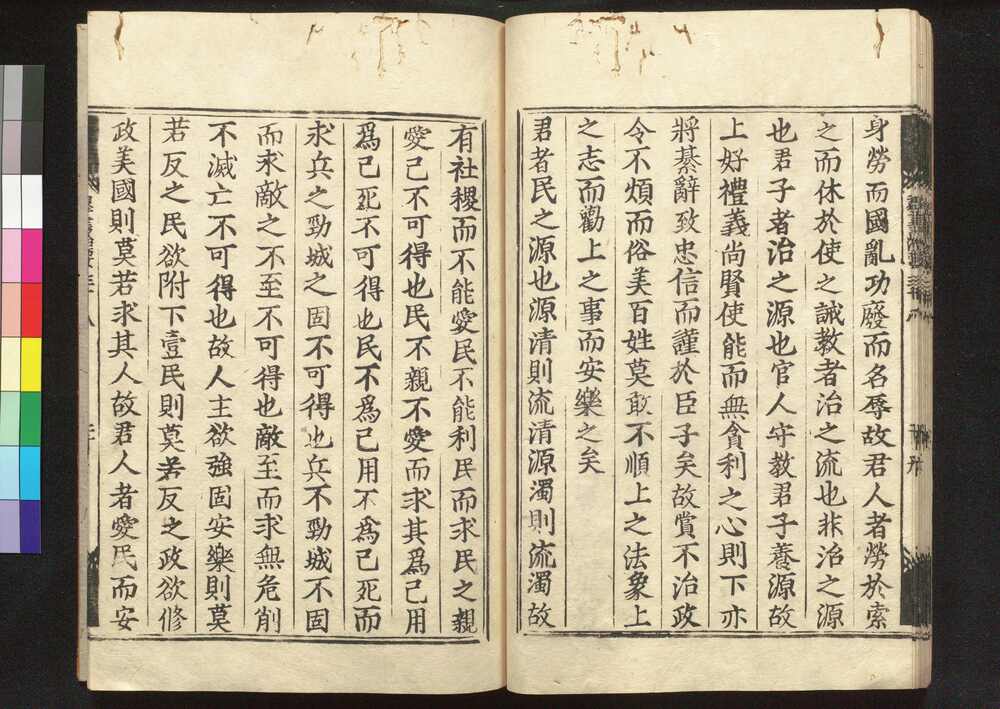 身勞而國亂功廢而名辱故君人者勞於索
之而休於使之誡教者治之流也非治之源
也君子者治之源也官人守教君子養源故
上好禮義尚賢使能而無貪利之心則下亦
將綦辭致忠信而謹於臣子矣故賞不治政
令不煩而俗美百姓莫敢不順上之法象上
之志而勸上之事而安樂之矣
君者民之源也源清則流清源濁則流濁故
有社稷而不能愛民不能利民而求民之親
愛己不可得也民不親不愛而求其爲己用
爲己死不可得也民不爲己用不爲己死而
求兵之勁城之固不可得也兵不勁城不固
而求敵之不至不可得也敵至而求無危削
不滅亡不可得也故人主欲強固安樂則莫
若反之民欲附下壹民則莫若反之政欲修
政美國則莫若求其人故君人者愛民而安